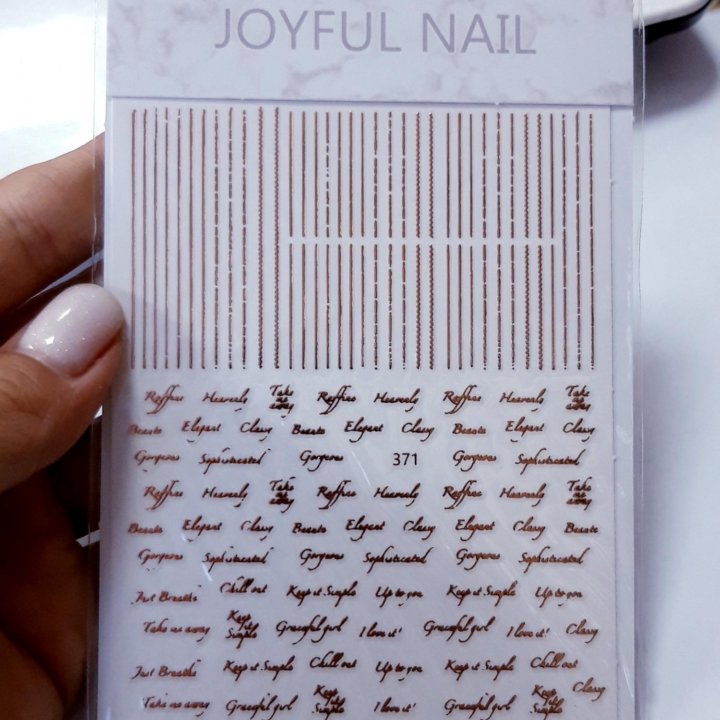 JOYFUL NAIL
Heavenly Take me away Heavenly Heavenly Take me away
Beauty Elegant Classy Beauty Elegant Classy Beauty Elegant Classy
Gorgeous Sophisticated Gorgeous 371 Gorgeous Sophisticated
Heavenly Take me away Heavenly Heavenly Take me away
Beauty Elegant Classy Beauty Elegant Classy Elegant Classy Beauty
Gorgeous Sophisticated Gorgeous Sophisticated Gorgeous Sophisticated
Just Breathe Chill out Keep it Simple Up to you Keep it Simple Up to you
Take me away Keep it Simple Graceful girl I love it! Graceful girl I love it! Classy
Just Breathe Keep it Simple Chill out Up to you Keep it Simple Chill out
Take me away Graceful girl Keep it Simple I love it! Graceful girl Keep it Simple Classy